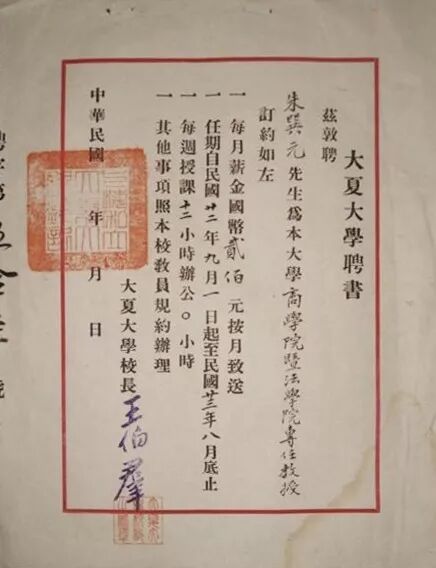 大夏大學聘書
茲敦聘
朱巽元先生爲本大學商學院暨法學院專任教授
訂約如左
一 每月薪金國幣貳佰元按月致送
一 任期自民國廿二年九月一日起至民國廿三年八月底止
一 每週授課十二小時辦公〇小時
一 其他事項照本校教員規約辦理
大夏大學校長 王伯羣
中華民國 年 月 日
聘字第 號